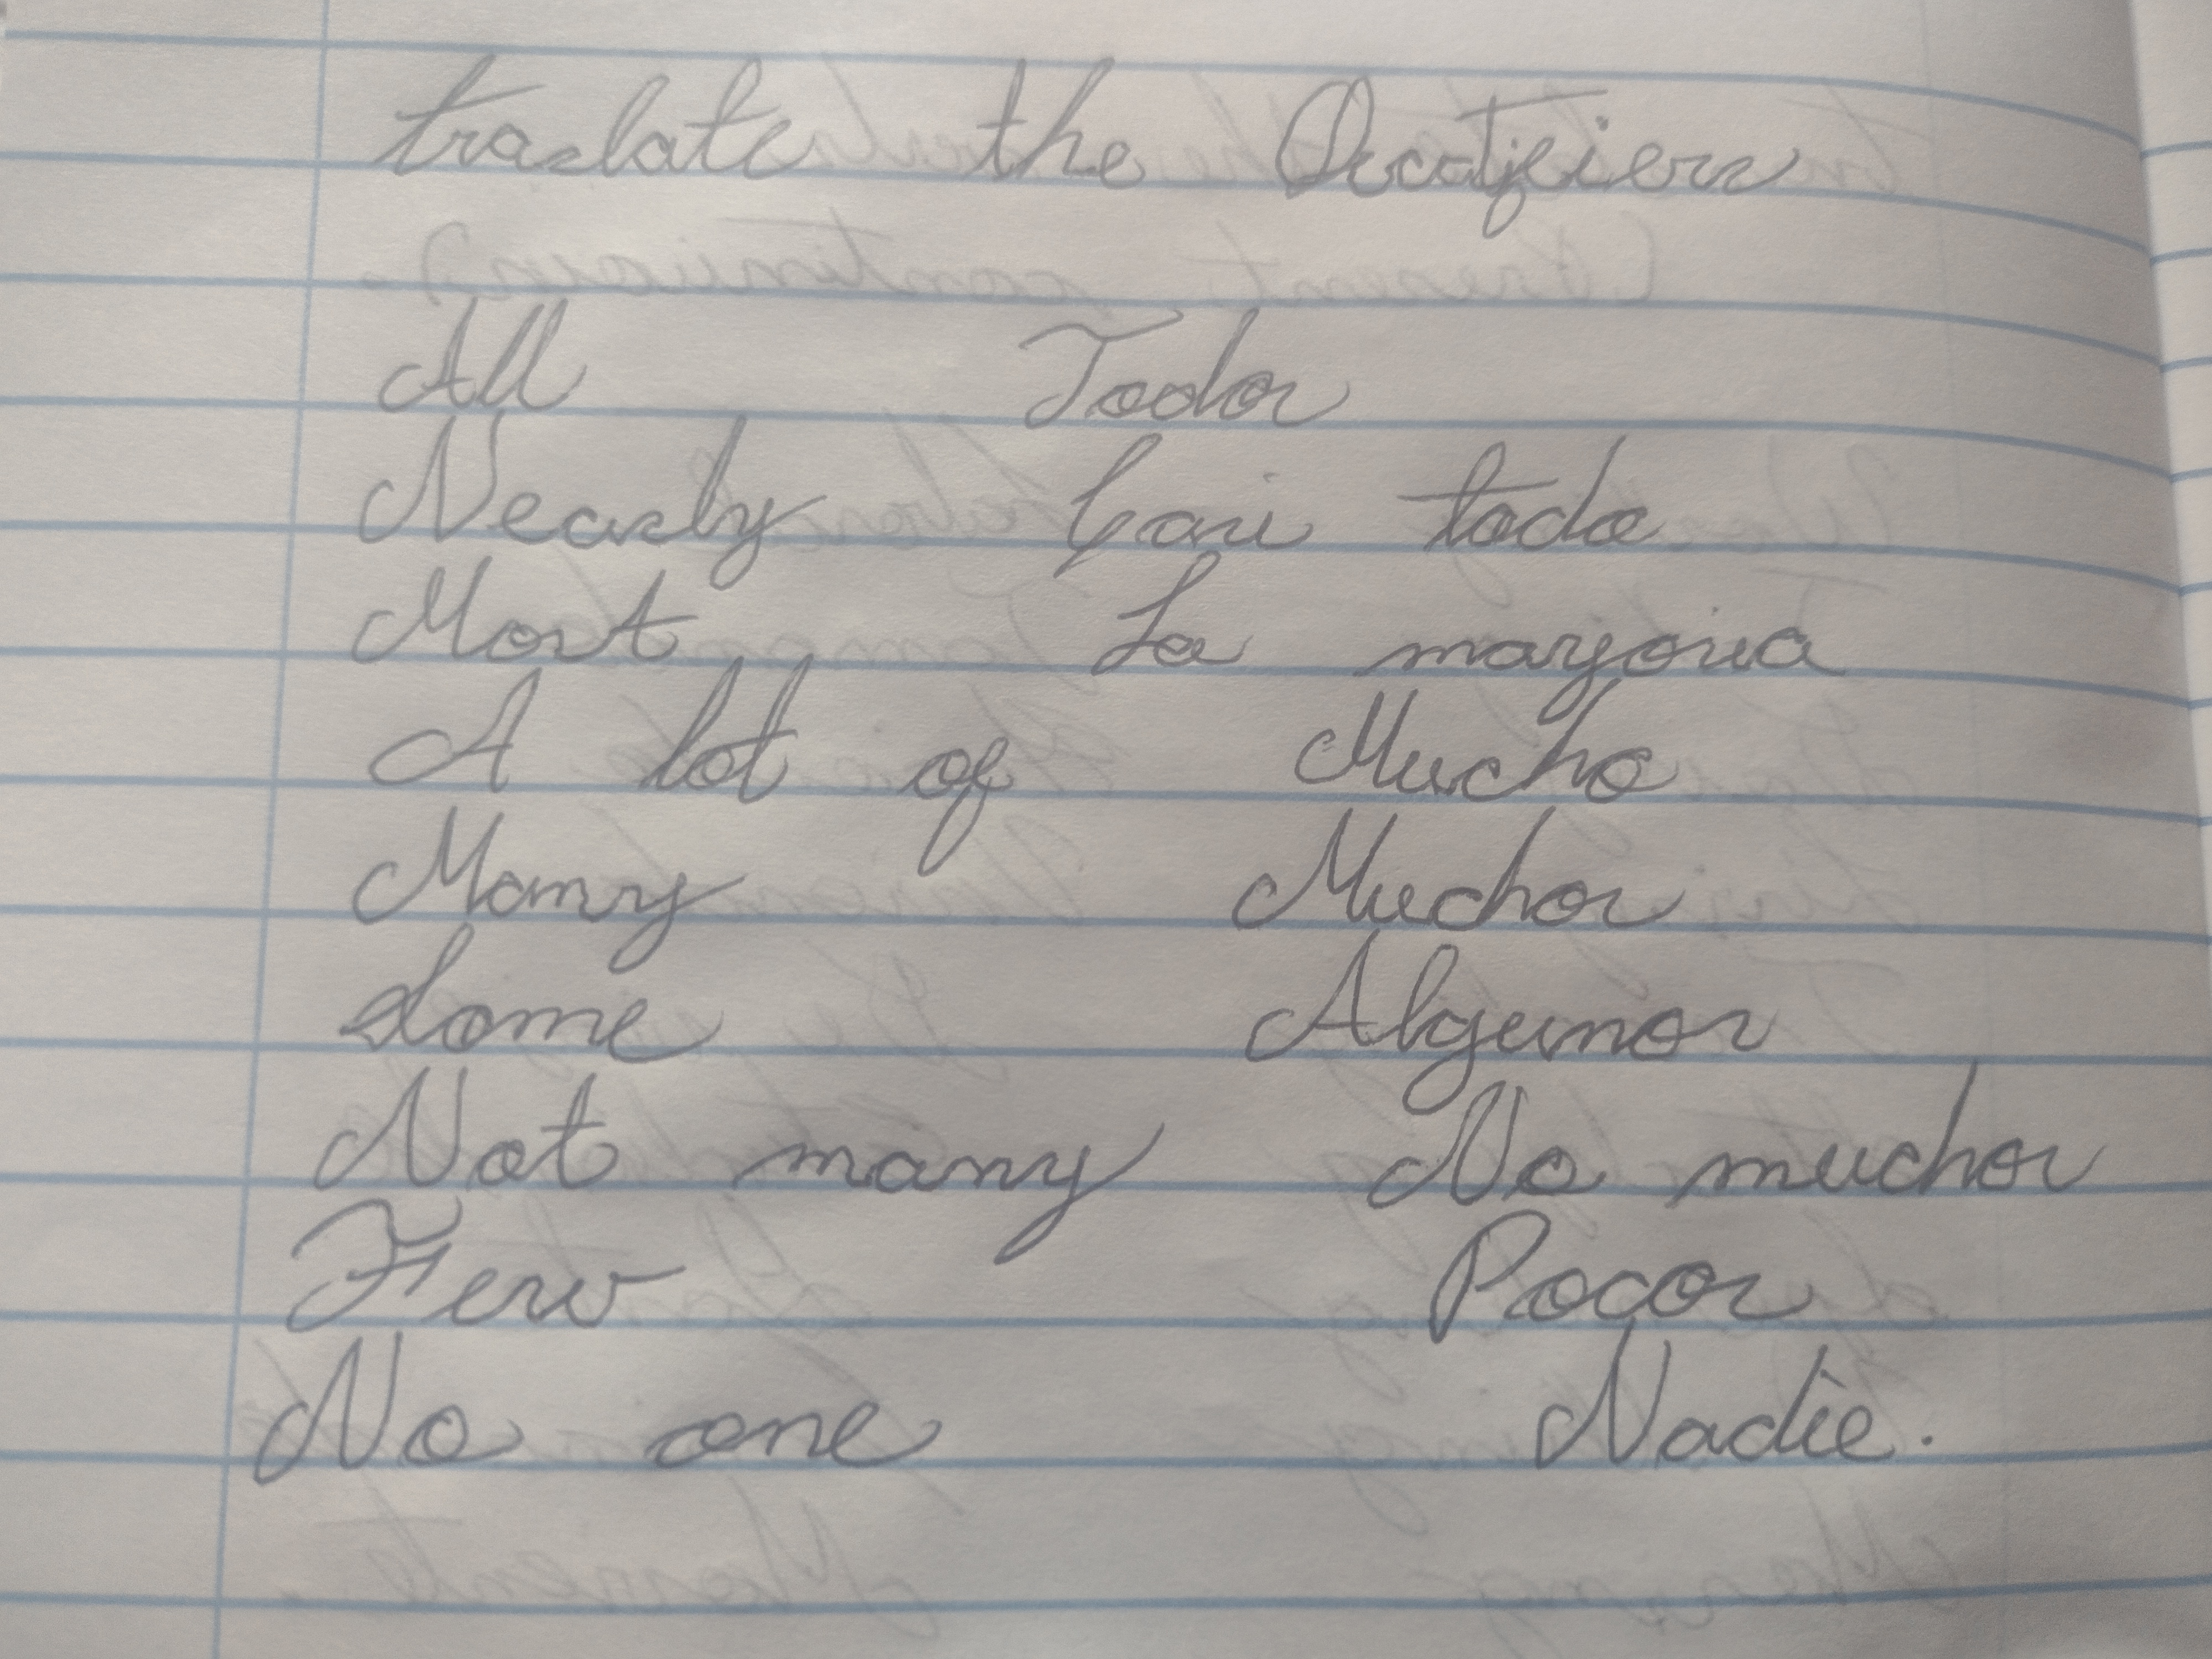 traslate the Qucatfiers
All Todos
Nearly Casi todo
Most La mayoria
A lot of Mucho
Many Muchos
Some Algunos
Not many No muchos
Few Pocos
No one Nadie.